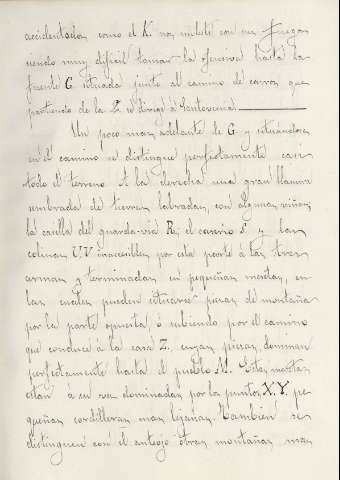 accidentados como el K. nos moleste con sus fuegos
siendo muy difícil tomar la ofensiva hasta la
fuente G situada junto al camino de carros que
partiendo de la Z se dirige á Santovenia.
Un poco mas adelante de G y situándose
en el camino se distingue perfectamente casi
todo el terreno. A la derecha una gran llanura
sembrada de tierras labradas, con algunas viñas,
la casilla del guarda-vía R; el camino s' y las
colinas U.V inaccesibles por esta parte á las tres
armas y terminadas en pequeñas mesetas, en
las cuales pueden situarse piezas de montaña
por la parte opuesta ó subiendo por el camino
que conduce á la casa Z. cuyas piezas dominan
perfectamente hasta el pueblo M. Estas mesetas
están a su vez dominadas por los puntos X.Y. pe-
queñas cordilleras mas lejanas. También se
distinguen con el anteojo otras montañas mas